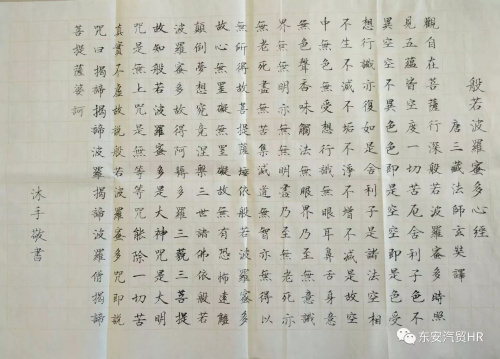 般若波羅蜜多心經
唐三藏法師玄奘譯
觀自在菩薩行深般若波羅蜜多時照
見五蘊皆空度一切苦厄舍利子色不
異空空不異色色即是空空即是色受
想行識亦復如是舍利子是諸法空相
不生不滅不垢不淨不增不減是故空
中無色無受想行識無眼耳鼻舌身意
無色聲香味觸法無眼界乃至無意識
界無無明亦無無明盡乃至無老死亦
無老死盡無苦集滅道無智亦無得以
無所得故菩提薩埵依般若波羅蜜多
故心無罣礙無罣礙故無有恐怖遠離
顛倒夢想究竟涅槃三世諸佛依般若
波羅蜜多故得阿耨多羅三藐三菩提
故知般若波羅蜜多是大神咒是大明
咒是無上咒是無等等咒能除一切苦
真實不虛故說般若波羅蜜多咒即說
咒曰揭諦揭諦波羅揭諦波羅僧揭諦
菩提薩婆訶
沐手敬書
東安汽贸HR